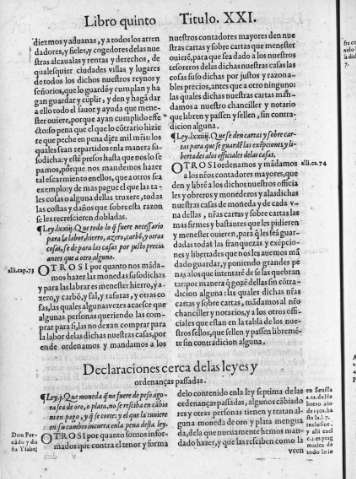 Libro quinto Titulo. XXI.
diezmos y aduanas, y a todos los arren
dadores, y fieles, y cogedores de las nue
stras alcaualas y rentas y derechos, de
qualesquier ciudades villas y lugares
de todos los dichos nuestros reynos y
señorios, que lo guardẽ y cumplan y ha
gan guardar y cũplir, y den y hagã dar
a ello todo el fauor y ayuda que menes
ter ouiere, porque ayan cumplido effe
cto: so pena que el que lo cõtrario hizie
re que peche en pena diez mil mrs. los
quales sean repartidos en la manera su
sodicha: y esté presos hasta que nos lo se
pamos, porque nos mandemos hazer
tal escarmiento en ellos, que a otros sea
exemplo: y de mas pague el que las ta
les cosas o alguna dellas truxere, todas
las costas y daños que sobre esta razon
se les recrescieren dobladas.
¶ Ley. lxxiij. Que todo lo q̃ fuere necessario
para la labor, hierro, azero, carbõ, y otras
cosas, se dé para las casas por justo precio
antes que a otro alguno.
alli. cap. 73
OTROSI por quanto nos mãda
mos hazer las monedas susodichas
y para las labrar es menester hierro, y a-
zero, y carbõ, y sal, y rasuras, y otras co
sas, las quales algunas vezes acaesce que
algunas personas queriendo las com-
prar para si, las no dexan comprar para
la labor de las dichas nuestras casas, por
ende ordenamos y mandamos a los
nuestros contadores mayores den nue
stras cartas y sobre cartas que menester
ouierẽ, para que sea dado a los nuestros
tesoreros de las dichas nuestras casas las
cosas suso dichas por justos y razona-
bles precios, antes que a otro ninguno:
las quales dichas nuestras cartas mãda-
damos a nuestro chanciller y notario
que libren y passen y sellen, sin contra-
dicion alguna.
¶ Ley. lxxiiij. Que se den cartas y sobre car
tas para que se guardẽ las exẽpciones y li-
bertades a los officiales de las casas.
alli. ca. 74
OTROSI ordenamos y mãdamos
a los ñros contadores mayores, que
den y librẽ a los dichos nuestros officia
les y obreros y monederos y alas dichas
nuestras casas de moneda y de cada v-
na dellas, ñras cartas y sobre cartas las
mas firmes y bastantes que les pidieren
y menester ouieren, para q̃ les seã guar-
dadas todas las franquezas y exẽpcio-
nes y libertades que nos les auemos mã
dado guardar, y poniendo grandes pe
nas a los que intentarẽ de se las quebran
tar por manera q̃ gozẽ dellas sin cõtra-
dicion alguna: las quales dichas ñras
cartas y sobre cartas, mãdamos al ñro
chanciller y notarios, y a los otros offi-
ciales que estan en la tabla de los nue-
stros sellos, que sellen y passen libremẽ-
te sin contradicion alguna.
Declaraciones cerca de las leyes y
ordenanças passadas.
¶ Ley. j. Que moneda q̃ no fuere de peso ago-
ra sea de oro, o plata, no se resciba en cãbio
ni en pago, y q̃ se corte: y el que la tuuiere
en su cambio incurra en la pena desta ley.
Don Fer-
nãdo y da
ña Ysabel
OTROSI por quanto somos infor
mados que contra el tenor y forma
de lo contenido en la ley septima de las
ordenanças passadas, algunos cãbiado
res y otras personas tienen y tratan al-
guna moneda de oro y plata mengua
da, dela que nueuamente hemos man-
dado hazer, y que las resciben como la
veen